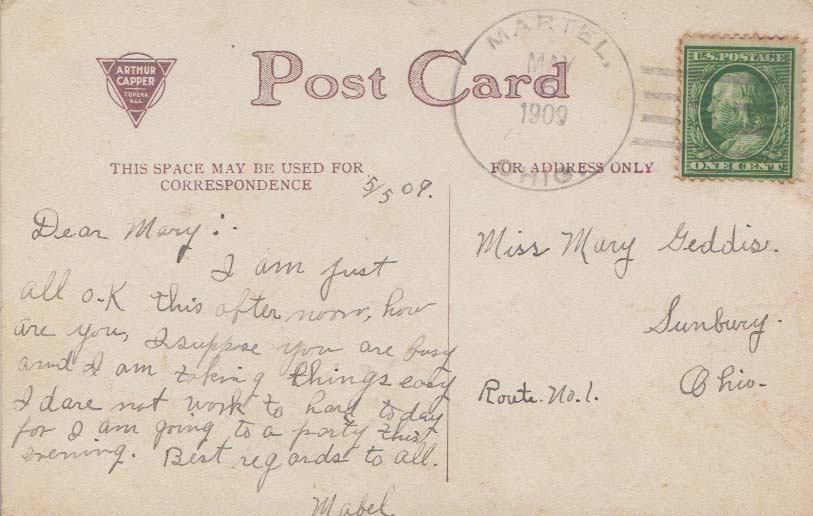 ARTHUR
CAPPER
TOPEKA
KAS.
Post Card
MARTEL,
MAY
1909
OHIO
U.S. POSTAGE
ONE CENT
THIS SPACE MAY BE USED FOR
CORRESPONDENCE
FOR ADDRESS ONLY
5/5 09.
Dear Mary:
I am just
all O-K this afternoon, how
are you, I suppose you are busy
and I am taking things easy
I dare not work to hard today
for I am going to a party this
evening. Best regards to all.
Mabel.
Miss Mary Geddis.
Sunbury.
Ohio.
Route. No. 1.